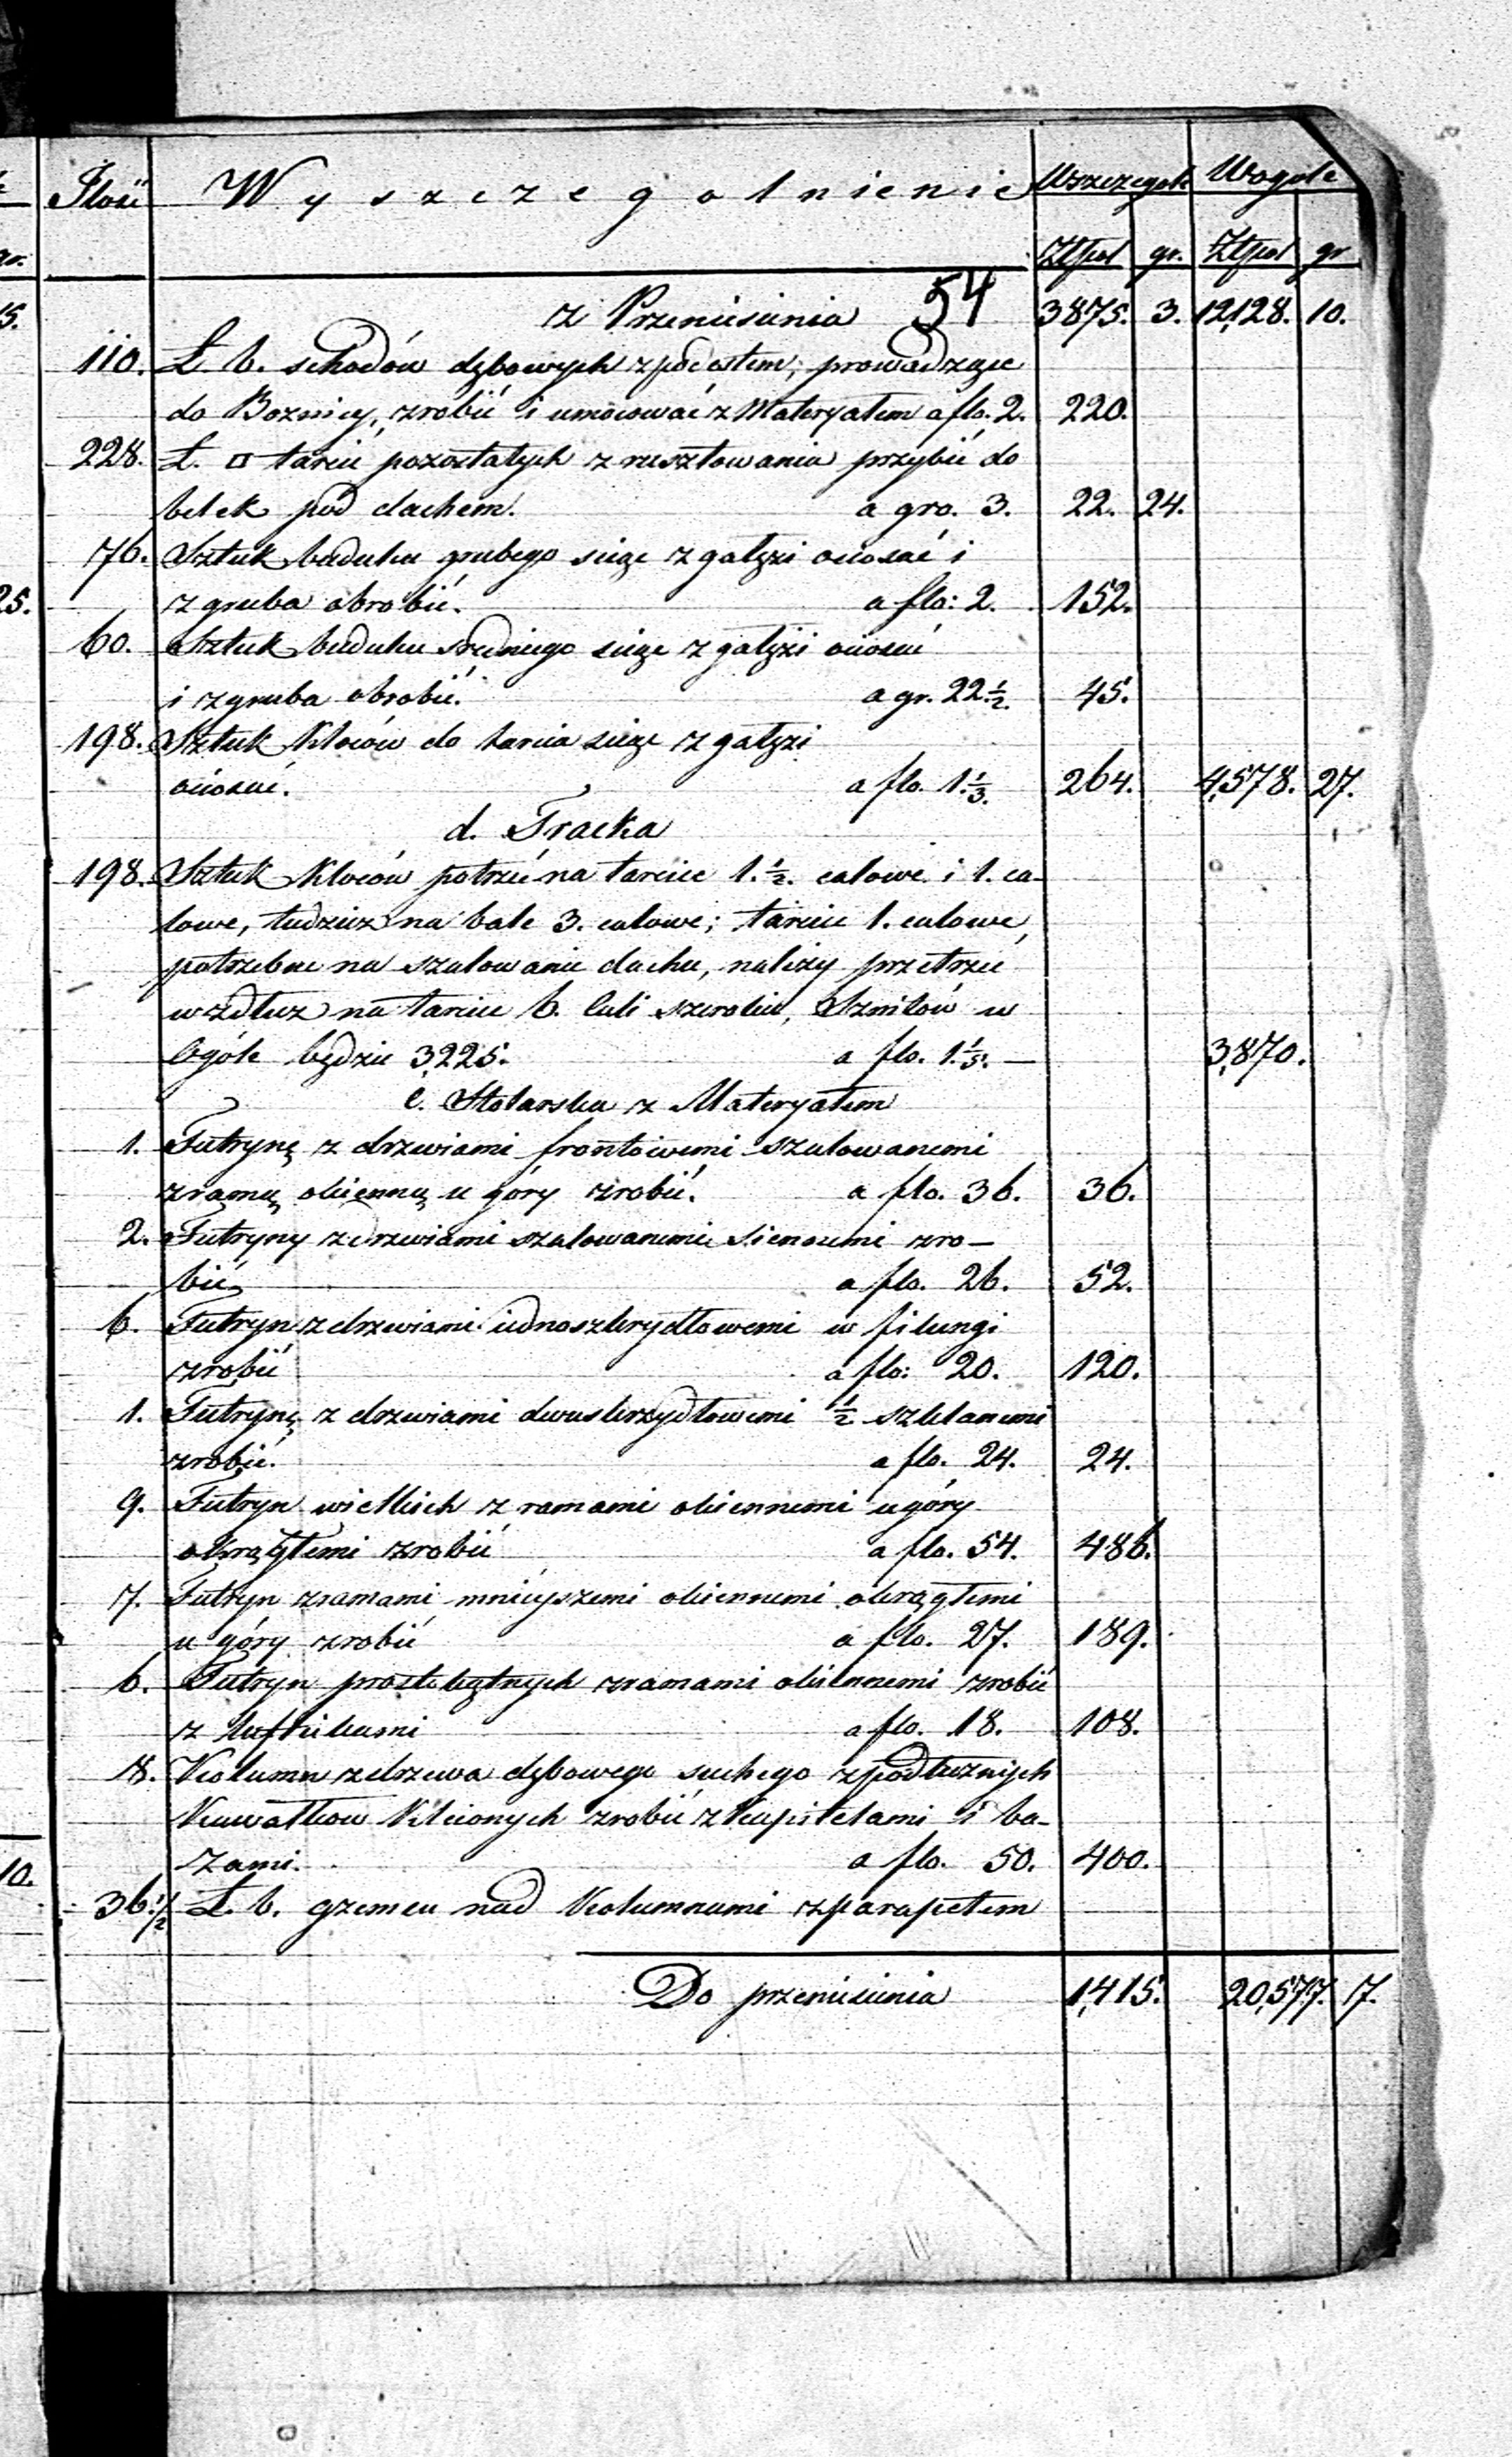 Ilość Wyszczególnienie Wszczególe Wogóle
Złpol gr. Złpol gr
z Przeniesienia 54 3875. 3. 12,128. 10.
110. Ł. b. schodów dębowych z podestem, prowadzące
do Boznicy, zrobić i umocować z Materyałem a flo. 2. 220.
228. Ł. □ tarcic pozostałych z rusztowania przybić do
belek pod dachem. a gro. 3. 22. 24.
76. Sztuk buduku grubego sięgę z gałęzi ociosać i
z gruba obrobić. a flo: 2. 152.
60. Sztuk buduku sredniego sięgę z gałęzi ociosać
i z gruba obrobić. a gr. 22 1/2. 45.
198. Sztuk Kloców do tarcia sięgę z gałęzi
ociosać. a flo. 1. 1/3. 264. 4,578. 27.
d. Tracka
198. Sztuk Kloców potrzeć na tarcice 1. 1/2. calowe i 1. ca-
lowe, tudzież na bale 3. calowe; tarcice 1. calowe,
potrzebne na szalowanie dachu, należy przetrzeć
wzdłuz na tarcice 6. cali szerokie, Sznitów w
Ogóle będzie 3,225. a flo. 1. 1/5. — 3,870.
e. Stolarska z Materyałem
1. Futrynę z drzwiami frontowemi szalowanemi
z ramą okienną u góry zrobić. a flo. 36. 36.
2. Futryny z drzwiami szalowanemi sienoemi zro-
bić a flo. 26. 52.
6. Futryn z drzwiami iednoskrzydłowemi w filungi
zrobić a flo: 20. 120.
1. Futrynę z drzwiami dwuskrzydłowemi 1/2 szklanemi
zrobić. a flo. 24. 24.
9. Futryn wielkich z ramami okiennemi u góry
okrągłemi zrobić a flo. 54. 486.
7. Futryn z ramami mnieyszemi okiennemi okrągłemi
u góry zrobić a flo. 27. 189.
6. Futryn prostokątnych z ramami okiennemi zrobić
z luftrikami a flo. 18. 108.
8. Kolumn z drzewa dębowego suchego z podłuznych
Kawałkow Kleionych zrobić z Kapitelami i ba-
zami. a flo. 50. 400.
36 1/2 Ł. b. gzemsu nad Kolumnami z parapetem
Do przeniesienia 1,415. 20,577. 17.